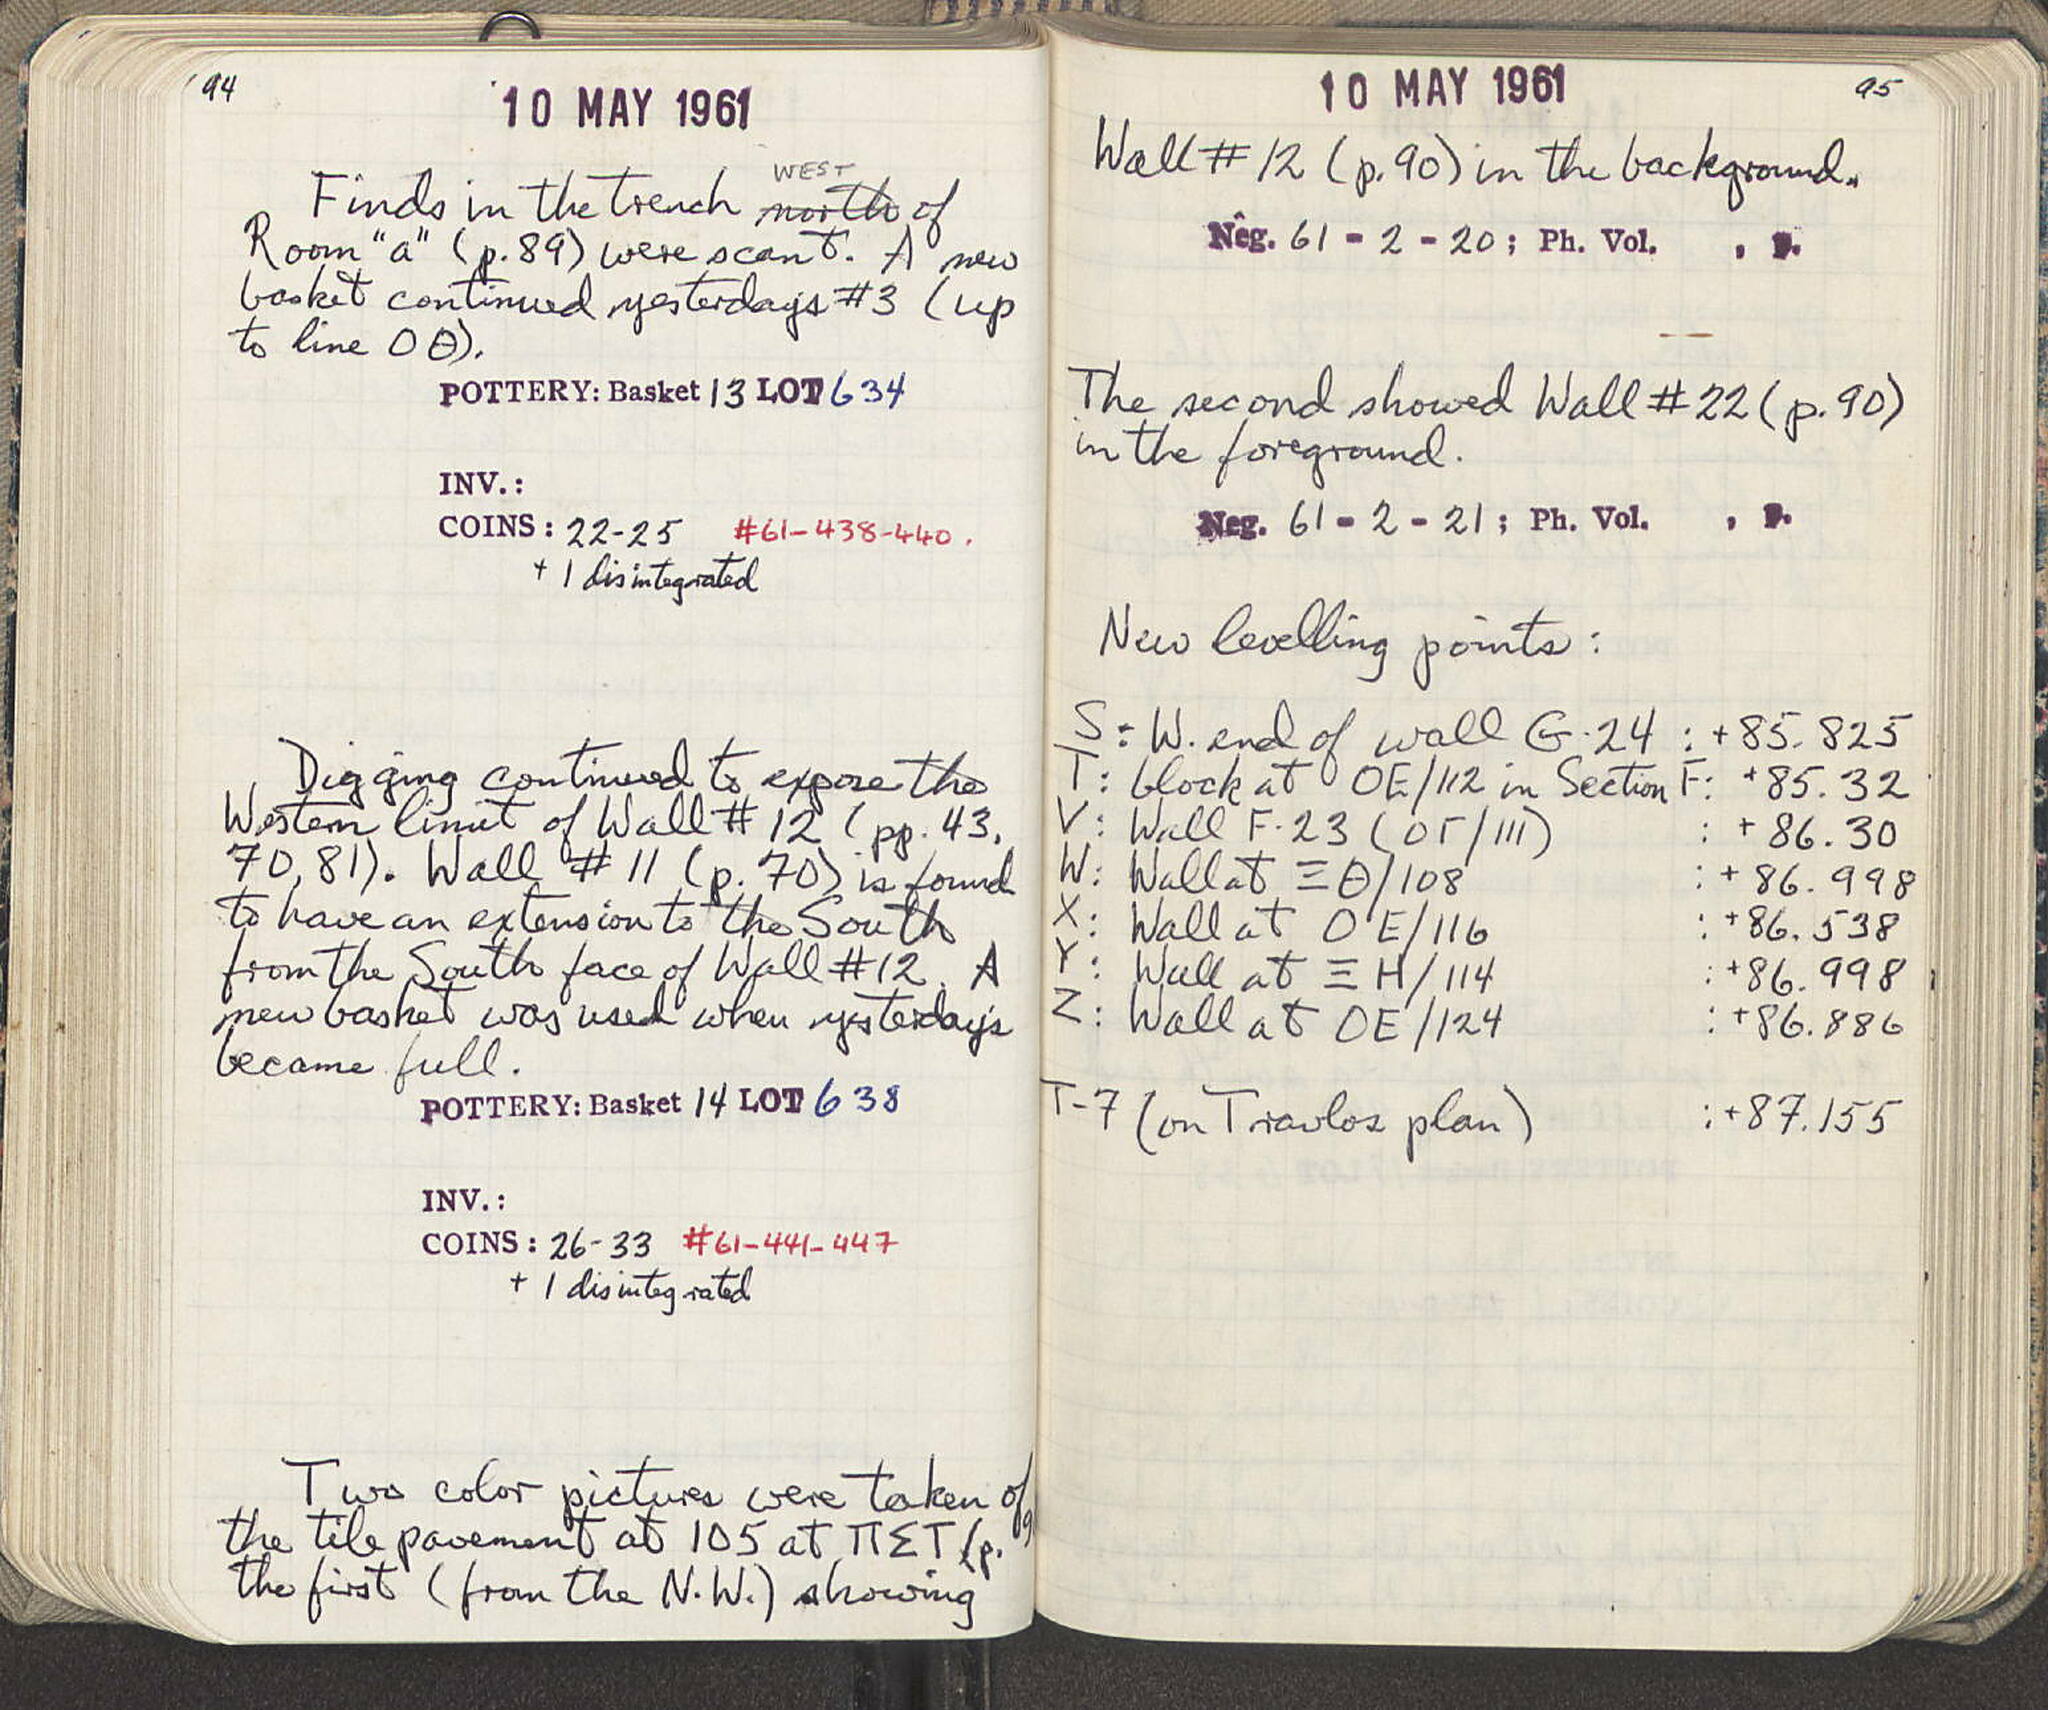 94
10 MAY 1961
WEST
Finds in the trench north of
Room "a" (p.89) were scant. A new
basket continued yesterday's #3 (up
to line OΘ).
POTTERY: Basket 13 LOT 634
INV.:
COINS: 22-25 #61-438-440.
+ 1 disintegrated
Digging continued to expose the
Western limit of Wall # 12 (pp. 43,
70, 81). Wall # 11 (p. 70) is found
to have an extension to the South
from the South face of Wall #12. A
new basket was used when yesterday's
became full.
POTTERY: Basket 14 LOT 638
INV.:
COINS: 26-33 #61-441-447
+ 1 disintegrated
Two color pictures were taken of
the tile pavement at 105 at ΠΣΤ (p.
the first (from the N.W.) showing
95
10 MAY 1961
Wall # 12 (p.90) in the background.
Neg. 61 - 2 - 20; Ph. Vol. , p.
The second showed Wall # 22 (p.90)
in the foreground.
Neg. 61 - 2 - 21; Ph. Vol. , p.
New levelling points:
S: W. end of wall G-24 : +85.825
T: block at OE/112 in Section F: +85.32
V: Wall F-23 (OΓ/111) : +86.30
W: Wall at ΞΘ/108 : +86.998
X: Wall at OE/116 : +86.538
Y: Wall at ΞH/114 : +86.998
Z: Wall at OE/124 : +86.886
T-7 (on Travlos plan) : +87.155